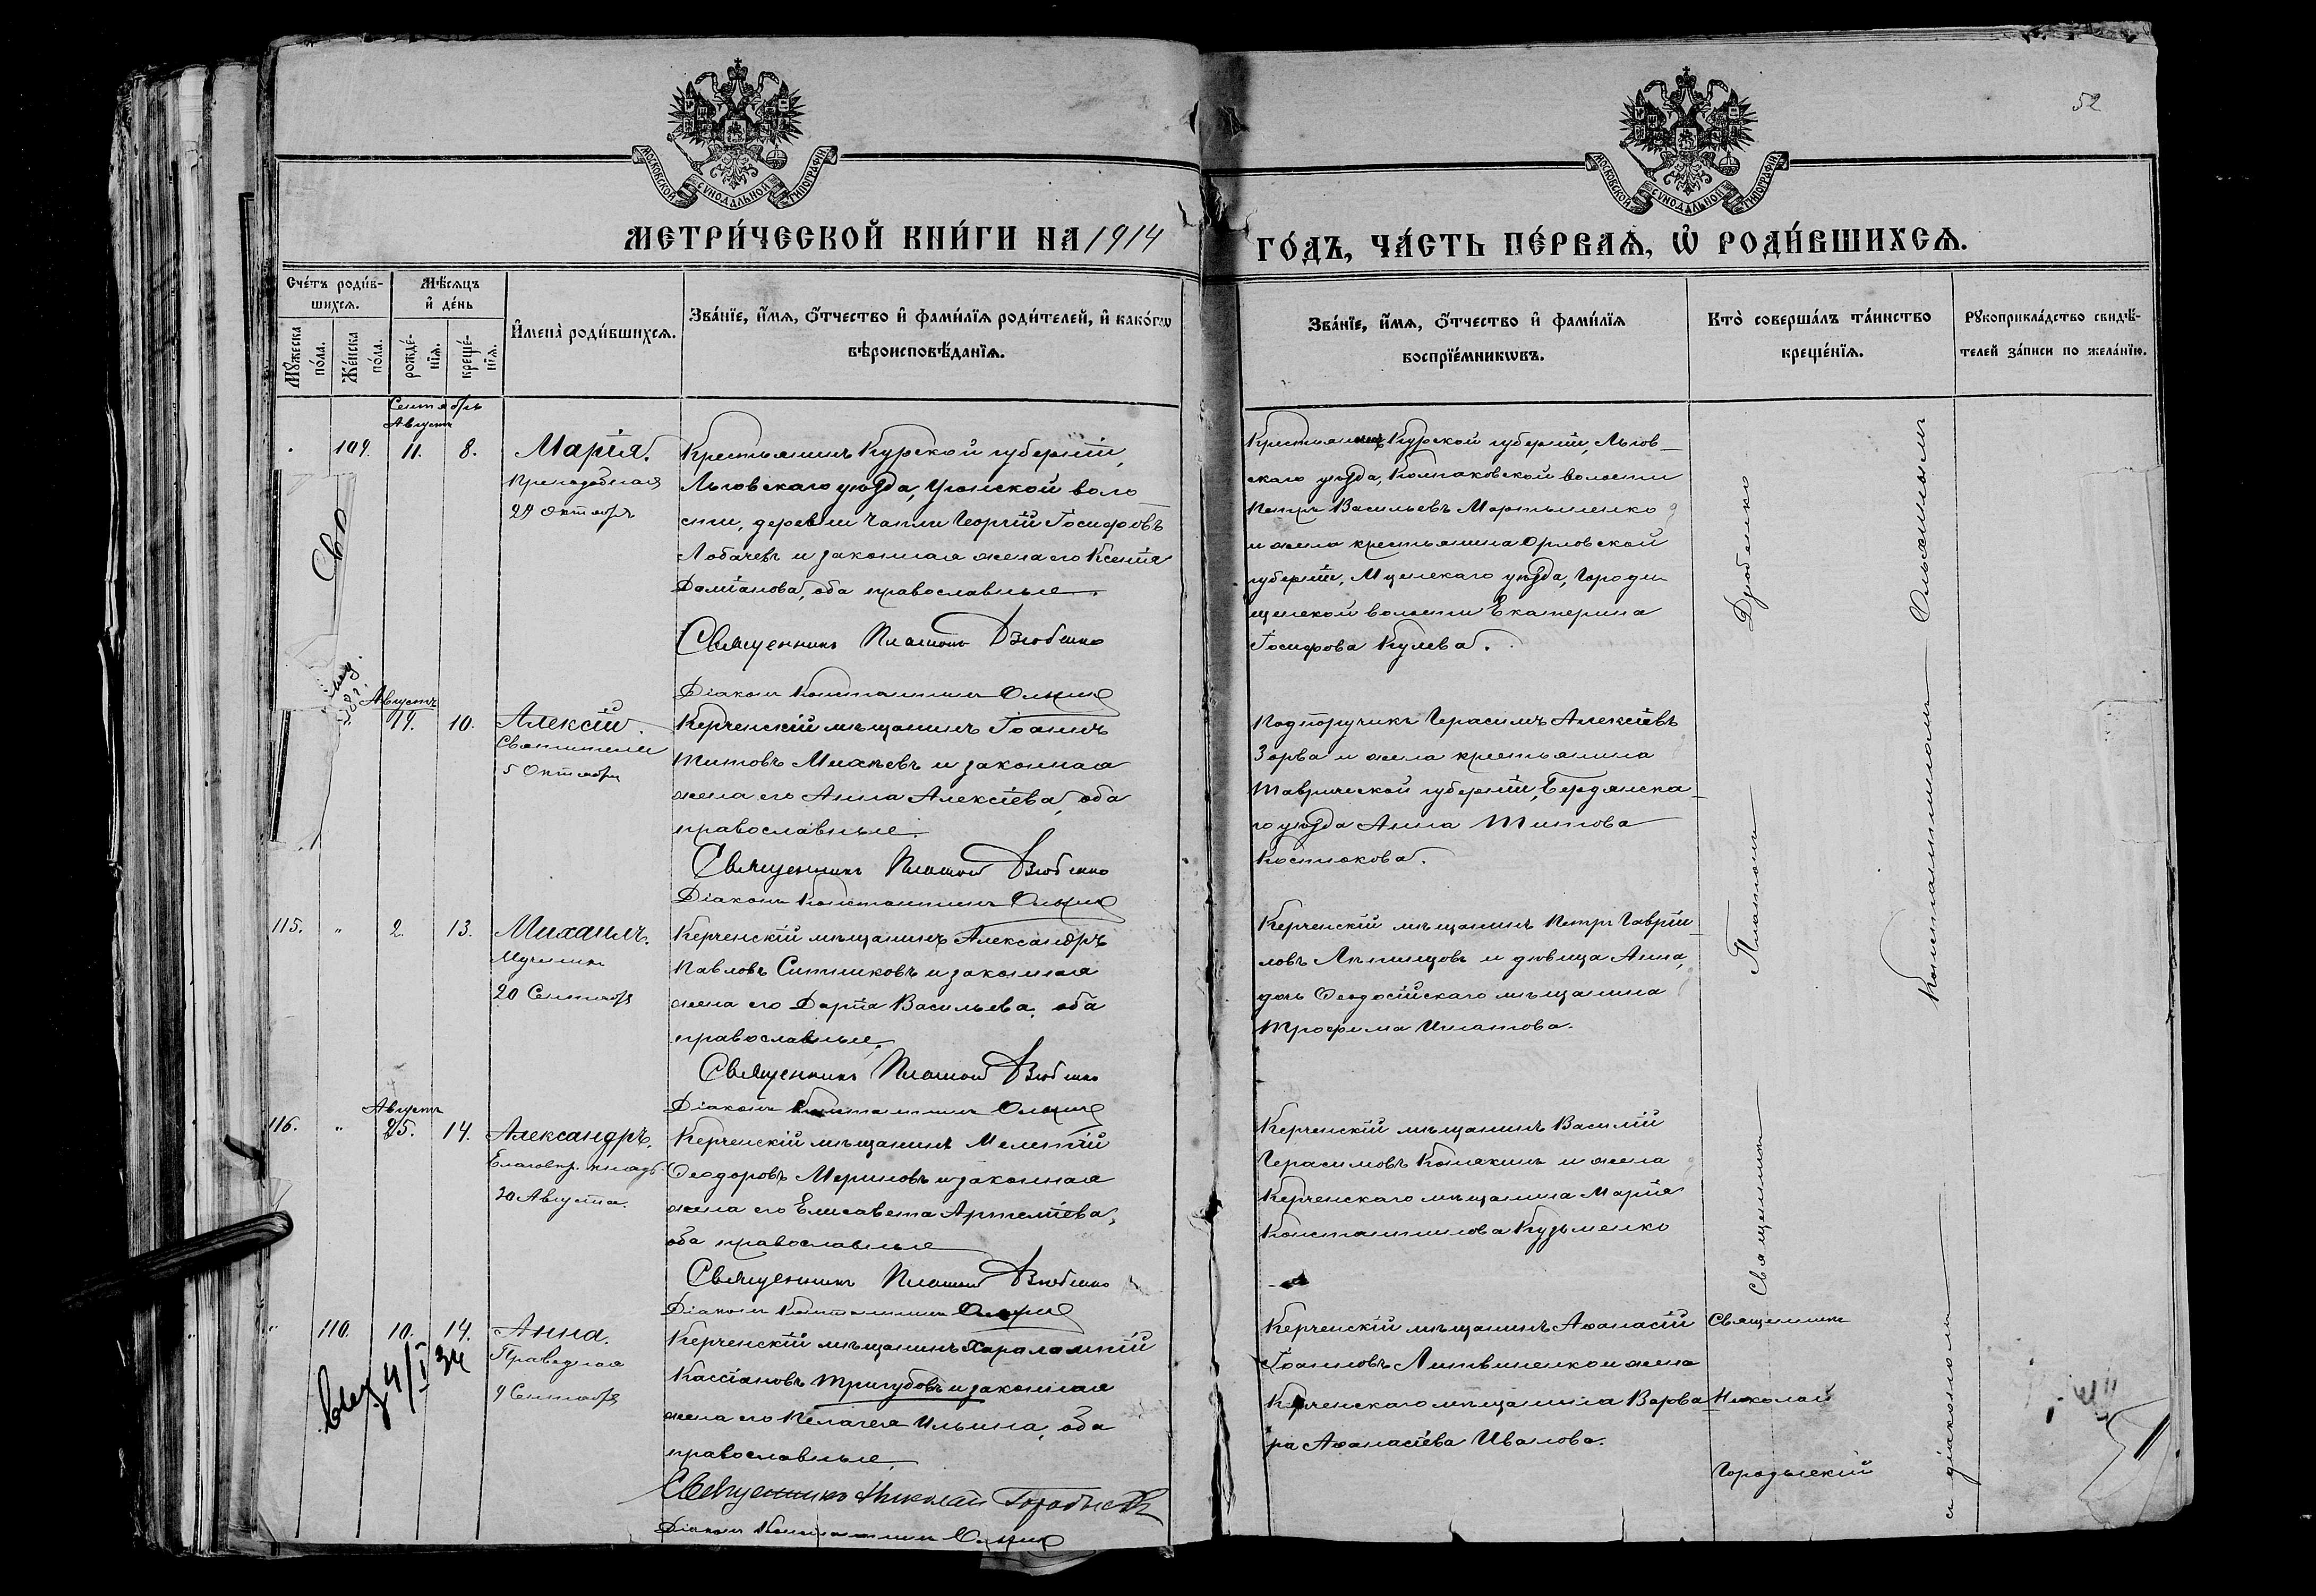 52
МОСКОВСКОЙ СѴНОДАЛЬНОЙ ТИПОГРАФІИ
МОСКОВСКОЙ СѴНОДАЛЬНОЙ ТИПОГРАФІИ
МЕТРИ́ЧЕСКОЙ КНИ́ГИ НА 1914
ГО́ДЪ, ЧА́СТЬ ПЕ́РВАѦ, Ѡ РОДИ́ВШИХСѦ.
Сче́тъ роди́в-
шихсѧ.
Мѣ́сѧцъ
и҆ де́нь
Мꙋ́жеска
по́ла.
Же́нска
по́ла.
рожде́-
нїѧ.
креще́-
нїѧ.
И҆мена̀ роди́вшихсѧ.
Зва́нїе, и҆́мѧ, ѻ҆́тчество и҆ фами́лїѧ роди́телей, и҆ како́гѡ
вѣроисповѣ́данїѧ.
Зва́нїе, и҆́мѧ, ѻ҆́тчество и҆ фами́лїѧ
воспрїе́мникѡвъ.
Кто̀ соверша́лъ та́инство
креще́нїѧ.
Рꙋкоприкла́дство свидѣ́-
телей за́писи по жела́нїю.
Сентябрь
Августъ
109. 11. 8. Марія.
Преподобная
29 Октября
Крестьянинъ Курской губерніи,
Льговскаго уѣзда, Угонской воло
сти, деревни Чапли Георгій Іосифовъ
Лобачевъ и законная жена его Ксенія
Даміанова, оба православные.
Священникъ Платонъ Дзюбенко
Діаконъ Константинъ
Крестьянинъ Курской губерніи, Льгов-
скаго уѣзда, Колпаковской волости
Петръ Васильевъ Мартыненко
и жена крестьянина Орловской
губерніи, Мценскаго уѣзда, Городи
щенской волости Екатерина
Іосифова Кулева.
Августъ
19. 10. Алексій.
Святителя
5 Октября
Керченскій мѣщанинъ Іоаннъ
Титовъ Михѣевъ и законная
жена его Анна Алексіева, оба
православные.
Священникъ Платонъ Дзюбенко
Діаконъ Константинъ
Подпоручикъ Герасимъ Алексіевъ
Зорва и жена крестьянина
Таврической губерніи, Бердянска-
го уѣзда Анна Титова
Костюкова.
115. " 2. 13. Михаилъ.
Мученика
20 Сентября
Керченскій мѣщанинъ Александръ
Павловъ Ситниковъ и законная
жена его Дарія Васильева, оба
православные.
Священникъ Платонъ Дзюбенко
Діаконъ Константинъ
Керченскій мѣщанинъ Петръ Гаврии-
ловъ и дѣвица Анна,
дочь Ѳеодосійскаго мѣщанина
Трофима Игнатова.
Августъ
116. " 25. 14. Александръ.
Благовѣр. князь
30 Августа.
Керченскій мѣщанинъ Мелетій
Ѳеодоровъ Мериновъ и законная
жена его Елисавета Артеміева,
оба православные
Священникъ Платонъ Дзюбенко
Діаконъ Константинъ
Керченскій мѣщанинъ Василій
Герасимовъ Конякинъ и жена
Керченскаго мѣщанина Марія
Константинова Кузьменко
" 110. 10. 14. Анна.
Праведная
9 Сентября
4/I 34
Керченскій мѣщанинъ Харалампій
Кассіановъ Тригубовъ и законная
жена его Пелагея Ильина, оба
православные.
Священникъ Николай Городыскій
Діаконъ Константинъ
Керченскій мѣщанинъ Аѳанасій
Іоанновъ Литвиненко и жена
Керченскаго мѣщанина Варва-
ра Аѳанасіева Иванова.
Священникъ
Николай
Городыскій
Священникъ Платонъ Дзюбенко
съ діакономъ Константиномъ